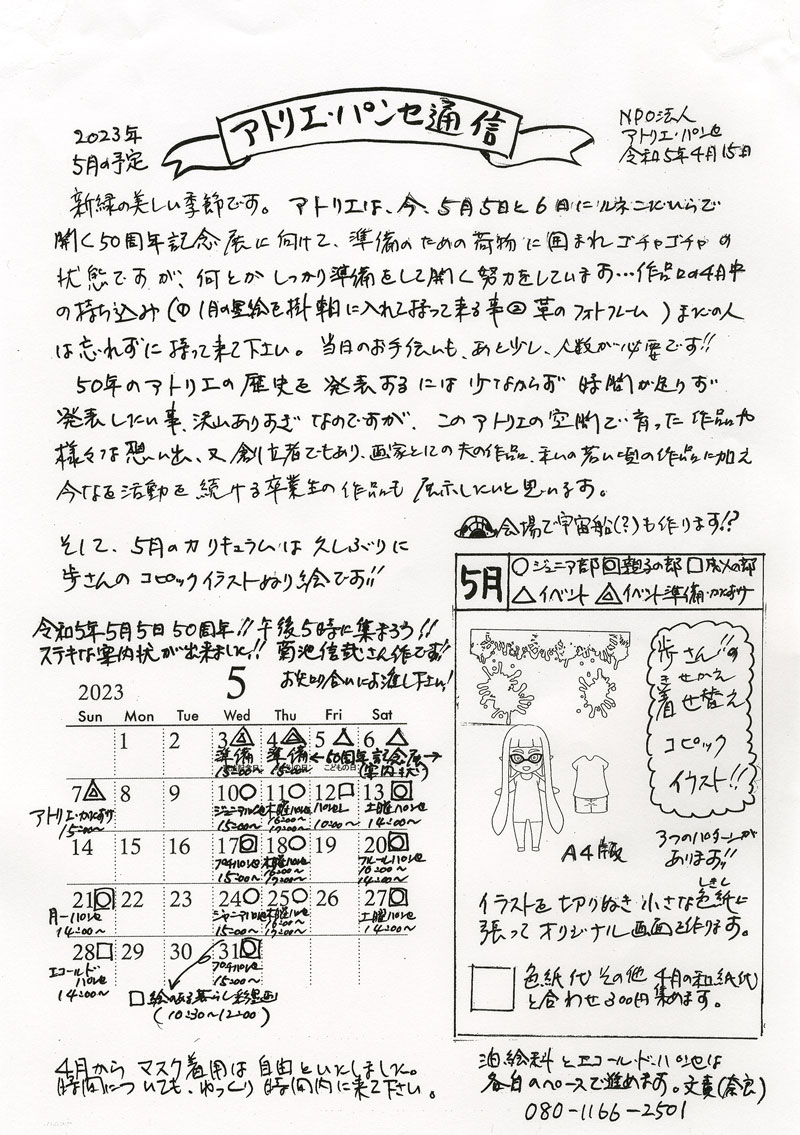 アトリエ・パンセ通信
2023年
5月の予定
NPO法人
アトリエ・パンセ
令和5年4月15日
新緑の美しい季節です。アトリエは、今、5月5日と6日にルネこだいらで
開く50周年記念展に向けて、準備のための荷物に囲まれゴチャゴチャの
状態ですが、何とかしっかり準備をして開く努力をしています…作品の4月中
の持ち込み(① 1月の墨絵を掛軸に入れて持って来る事② 革のフォトフレーム )まだの人
は忘れずに持って来て下さい。当日のお手伝いも、あと少し、人数が必要です!!
50年のアトリエの歴史を発表するには少なからず時間が足りず
発表したい事、沢山ありすぎなのですが、このアトリエの空間で育った作品や
様々な想い出、又創立者でもあり、画家としての夫の作品、私の若い頃の作品に加え
今なを活動を続ける卒業生の作品も展示したいと思います。
会場で宇宙船(?)も作ります!?
そして、5月のカリキュラムは久しぶりに
歩さんのコピックイラストぬり絵です!!
令和5年5月5日50周年!!午後5時に集まろう!!
ステキな案内状が出来ました!!菊池信哉さん作です!!
お知り合いにお渡し下さい!
2023 5
Sun Mon Tue Wed Thu Fri Sat
1 2 3 4 5 6
準備 準備 ←50周年記念展→
15:00〜 15:00〜 こどもの日 (案内状)
7 8 9 10 11 12 13
アトリエ・かたずけ
15:00〜
ジュニアパンセ 木曜パンセ パンセL 土曜パンセ
15:00〜 16:00〜 17:00〜 10:00〜 14:00〜
14 15 16 17 18 19 20
プチパンセ 木曜パンセ ブルーパンセ
15:00〜 16:00〜 17:00〜 10:00〜 14:00〜
21 22 23 24 25 26 27
月一パンセ ジュニアパンセ 木曜パンセ 土曜パンセ
14:00〜 15:00〜 16:00〜 17:00〜 14:00〜
28 29 30 31
エコールドパンセ プチパンセ
14:00〜 15:00〜
□絵のある暮らし彩墨画
(10:30〜12:00)
5月
○ジュニア部 ◎親子の部 □成人の部
△イベント イベント準備・かたずけ
歩さん!!の
きせかえ
着せ替え
コピック
イラスト!!
A4版
3つのパターンが
あります!!
イラストを切りぬき小さな色紙に
しきし
張ってオリジナル画面を作ります。
色紙代その他4月の和紙代
と合わせ300円集めます。
4月からマスク着用は自由といたしました。
時間についても、ゆっくり時間内に来て下さい。
油絵科とエコールドパンセは
各自のペースで進めます。文責(奈良)
080-1166-2501